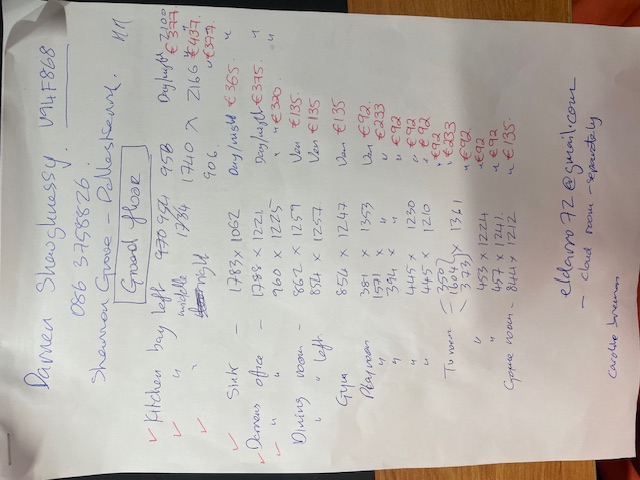 Darren Shaughnessy. V94F868
086 3758826.
Shannon Grove - Pallaskenry.
Ground floor
Kitchen bay left 970 954 958 Day/night 2100 €377
" " middle 1734 1740 x 2166 " €437.
" right 906. " €377.
Sink - 1783 x 1062 Day/night €365 "
Darrens office - 1788 x 1221 Day/night €375 "
" " 960 x 1225 " " €320 "
Dining room - 862 x 1259 Ven €135.
" " left 854 x 1257. Ven €135
Gym 854 x 1247 Ven €135
Playroom 381 x 1353 Ven €92
" 1571 x " " €233
" 394 x " " €92
" 445 x 1230 " €92
" 445 x 1210 " €92
Tv room 1361 " €92
1604 " €233
373 " €92.
" 453 x 1224 " €92
" 457 x 1241. " €92
Game room - 844 x 1212 " €135.
eldarso72@gmail.com
- room - separately